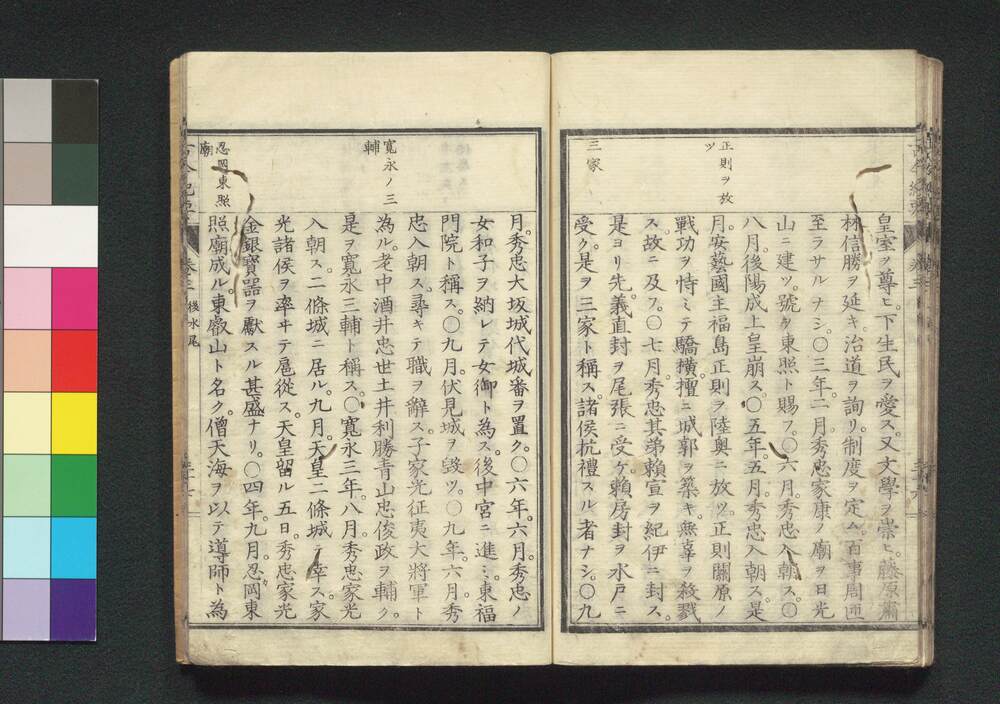 正則ヲ放
ツ
三家
皇室ヲ尊ヒ。下生民ヲ愛ス。又文學ヲ崇ヒ。藤原肅
林信勝ヲ延キ。治道ヲ詢リ。制度ヲ定ム。百事周匝
至ラサルナシ。〇三年二月。秀忠家康ノ廟ヲ日光
山ニ建ツ。號ヲ東照ト賜フ。〇六月。秀忠入朝ス。〇
八月。後陽成上皇崩ス。〇五年。五月。秀忠入朝ス。是
月。安藝國主福島正則ヲ陸奧ニ放ツ。正則關原ノ
戰功ヲ恃ミテ驕橫。擅ニ城郭ヲ築キ。無辜ヲ殺戮
ス。故ニ及フ。〇七月。秀忠其弟賴宣ヲ紀伊ニ封ス。
是ヨリ先。義直封ヲ尾張ニ受ケ。賴房封ヲ水戶ニ
受ク。是ヲ三家ト稱ス。諸侯抗禮スル者ナシ。〇九
寛永ノ三
輔
忍岡東照
廟
月。秀忠大坂城代城番ヲ置ク。〇六年。六月。秀忠ノ
女和子ヲ納レテ女御ト為ス。後中宮ニ進ミ。東福
門院ト稱ス。〇九月。伏見城ヲ毀ツ。〇九年。六月。秀
忠入朝ス。尋キテ職ヲ辭ス。子家光征夷大將軍ト
為ル。老中酒井忠世土井利勝靑山忠俊政ヲ輔ク。
是ヲ寬永三輔ト稱ス。〇寬永三年。八月。秀忠家光
入朝ス。二條城ニ居ル。九月。天皇二條城ニ幸ス。家
光諸侯ヲ率ヰテ扈從ス。天皇留ル五日。秀忠家光
金銀寶器ヲ獻スル甚盛ナリ。〇四年。九月。忍岡東
照廟成ル。東叡山ト名ク。僧天海ヲ以テ導師ト為
卷三
後水尾